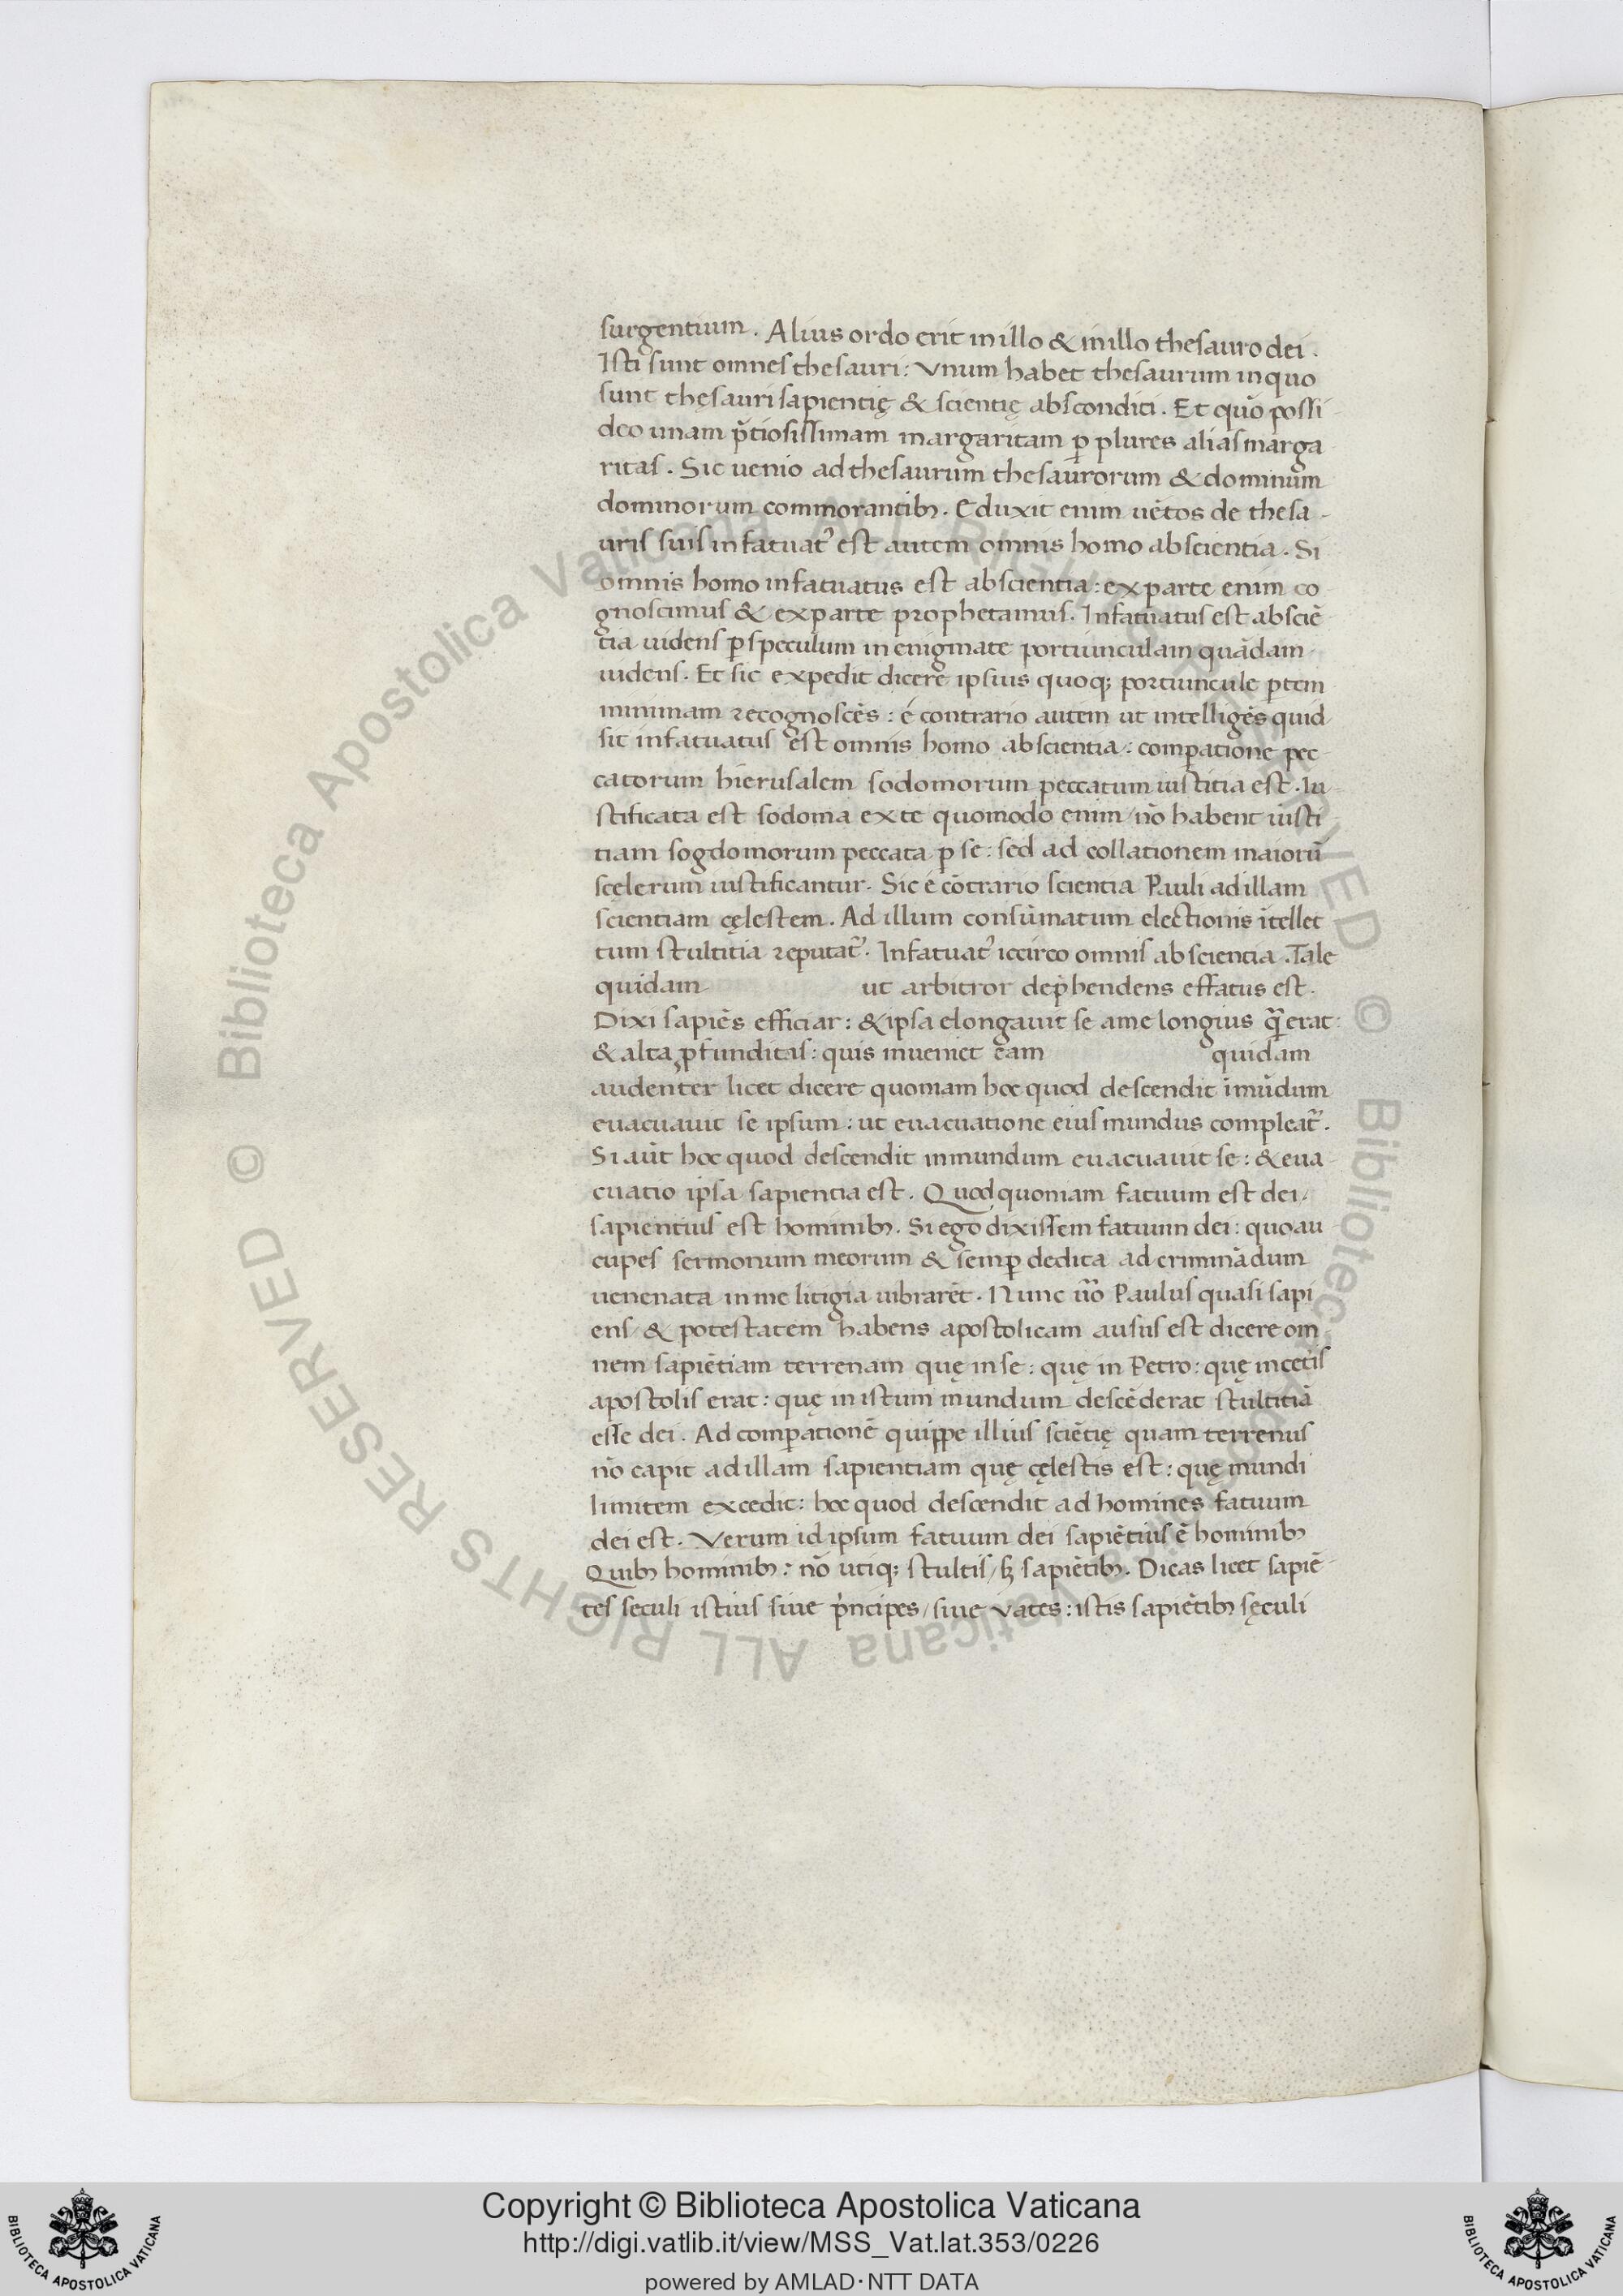 surgentium. Alius ordo erit in illo & in illo thesauro dei.
Isti sunt omnes thesauri: Vnum habet thesaurum in quo
sunt thęsauri sapientię & scientię absconditi. Et quõ possi
deo unam p̃tiosissimam margaritam ꝑ plures alias marga
ritas. Sic uenio ad thesaurum thesaurorum & dominum
dominorum commorantibꝫ. Eduxit enim uẽtos de thesa-
uris suis infatuat᾽ est autem omnis homo ab scientia. Si
omnis homo infatuatus est ab scientia: ex parte enim co
gnoscimus & ex parte prophetamus. Infatuatus est ab sciẽ
tia uidens ꝑ speculum in enigmate portiunculam quãdam
uidens. Et sic expedit dicere ipsius quoqꝫ portiuncule ꝑtem
minimam recognoscẽs: é contrario autem ut intelligẽs quid
sit infatuatus est omnis homo ab scientia: comꝑatione pec
catorum hierusalem sodomorum peccatum iustitia est. Iu
stificata est sodoma ex te quomodo enim nõ habent iusti
tiam sogdomorum peccata ꝑ se: sed ad collationem maiorũ
scęlerum iustificantur. Sic é cõtrario scientia Pauli ad illam
scientiam cęlestem. Ad illum consũmatum electionis ĩtellec
tum stultitia reputat᾽. Infatuat᾽ iccirco omnis ab scientia. Tale
quidam ut arbitror dep̃hendens effatus est.
Dixi sapiẽs efficiar: & ipsa elongauit se a me longius q̃ erat:
& alta ꝓfunditas: quis inueniet eam quidam
audenter licet dicere quoniam hoc quod descendit ĩ mũdum
euacuauit se ipsum: ut euacuatione eius mundus compleat᾽.
Si aũt hoc quod descendit in mundum euacuauit se: & eua
cuatio ipsa sapientia est. Quod quoniam fatuum est dei,
sapientius est hominibꝫ. Si ego dixissem fatuum dei: quo au
cupes sermonum meorum & semꝑ dedita ad criminãdum
uenenata in me litigia uibrarẽt. Nunc ũo Paulus quasi sapi
ens/ & potestatem habens apostolicam ausus est dicere om
nem sapiẽtiam terrenam quę in se: quę in Petro: quę in cet̃is
apostolis erat: quę in istum mundum descẽderat stultitiã
esse dei. Ad comꝑationẽ quippe illius sciẽtię quam terrenus
nõ capit ad illam sapientiam quę cęlestis est: quę mundi
limitem excedit: hoc quod descendit ad homines fatuum
dei est. Verum id ipsum fatuum dei sapiẽtius ẽ hominibꝫ
Quibꝫ hominibꝫ: nõ utiqꝫ stultis/ sꝫ sapiẽtibꝫ. Dicas licet sapiẽ
tes seculi istius siue p̃ncipes/ siue vates: istis sapiẽtibꝫ sęculi
© Biblioteca Apostolica Vaticana ALL RIGHTS RESERVED © Biblioteca Apostolica Vaticana ALL RIGHTS RESERVED
Copyright © Biblioteca Apostolica Vaticana
http://digi.vatlib.it/view/MSS_Vat.lat.353/0226
powered by AMLAD·NTT DATA
BIBLIOTECA APOSTOLICA VATICANA
BIBLIOTECA APOSTOLICA VATICANA